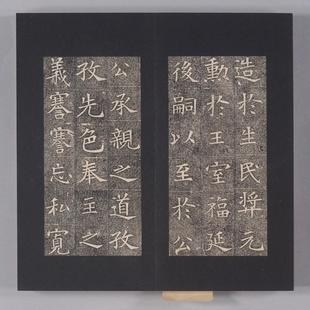 造於生民奬元
勳於王室福延
後嗣以至於公
公承親之道孜
孜先色奉主之
義謇謇忘私寬